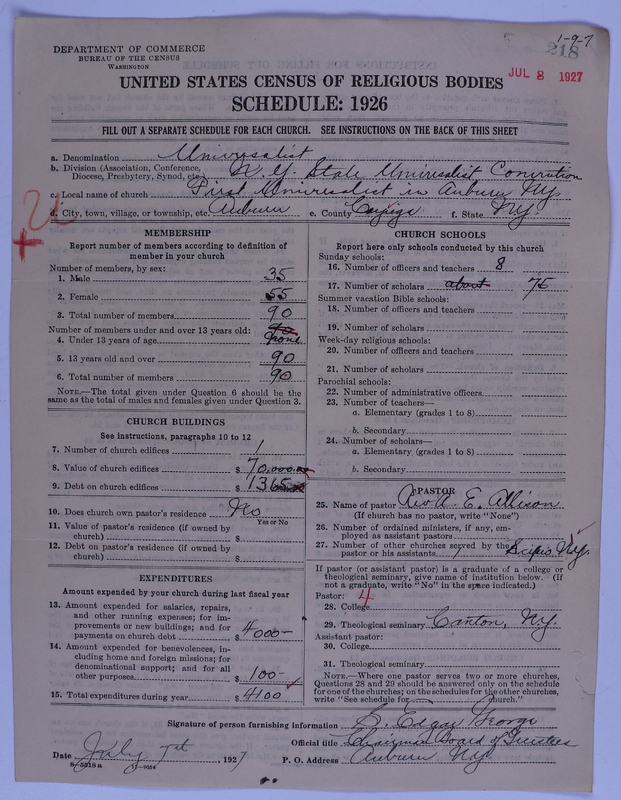 1-9-7
218
JUL 8 1927
DEPARTMENT OF COMMERCE
BUREAU OF THE CENSUS
WASHINGTON
UNITED STATES CENSUS OF RELIGIOUS BODIES
SCHEDULE: 1926
FILL OUT A SEPARATE SCHEDULE FOR EACH CHURCH. SEE INSTRUCTIONS ON THE BACK OF THIS SHEET
a. Denomination Universalist
b. Division (Association, Conference, Diocese, Presbytery, Synod, etc.) N.Y. State Universalist Convention
c. Local name of church First Universalist in Auburn NY.
d. City, town, village, or township, etc. Auburn e. County Cayuga f. State NY.
MEMBERSHIP
Report number of members according to definition of
member in your church
Number of members, by sex:
1. Male 35
2. Female 55
3. Total number of members 90
Number of members under and over 13 years old:
4. Under 13 years of age none
5. 13 years old and over 90
6. Total number of members 90
NOTE.—The total given under Question 6 should be
same as the total of males and females given under Question 3.
CHURCH BUILDINGS
See instructions, paragraphs 10 to 12
7. Number of church edifices 1
8. Value of church edifices $ 70,000.00
9. Debt on church edifices $ 1365
10. Does church own pastor's residence? No
Yes or No
11. Value of pastor's residence (if owned by
church) $
12. Debt on pastor's residence (if owned by
church) $
EXPENDITURES
Amount expended by your church during last fiscal year
13. Amount expended for salaries, repairs,
and other running expenses; for im-
provements or new buildings; and for
payments on church debt $ 4000-
14. Amount expended for benevolences, in-
cluding home and foreign missions; for
denominational support; and for all
other purposes $ 100-
15. Total expenditures during year $ 4100
CHURCH SCHOOLS
Report here only schools conducted by this church
Sunday schools:
16. Number of officers and teachers 8
17. Number of scholars about 75
Summer vacation Bible schools:
18. Number of officers and teachers
19. Number of scholars
Week-day religious schools:
20. Number of officers and teachers
21. Number of scholars
Parochial schools:
22. Number of administrative officers
23. Number of teachers—
a. Elementary (grades 1 to 8)
b. Secondary
24. Number of scholars—
a. Elementary (grades 1 to 8)
b. Secondary
PASTOR
25. Name of pastor Rev A. E. Allison
(If church has no pastor, write "None")
26. Number of ordained ministers, if any, em-
ployed as assistant pastors
27. Number of other churches served by the
pastor or his assistants 1 Scipio, NY.
If pastor (or assistant pastor) is a graduate of a college or
theological seminary, give name of institution below. (If
not a graduate, write "No" in the space indicated.)
Pastor: 4
28. College
29. Theological seminary Canton, NY.
Assistant pastor:
30. College
31. Theological seminary
NOTE.—Where one pastor serves two or more churches,
Questions 28 and 29 should be answered only on the schedule
for one of the churches; on the schedules for the other churches,
write "See schedule for church."
Signature of person furnishing information S. Edgar George
Official title Chairman Board of Trustees
Date July 7th, 1927 P. O. Address Auburn N.Y.
8-5518a 11-9054